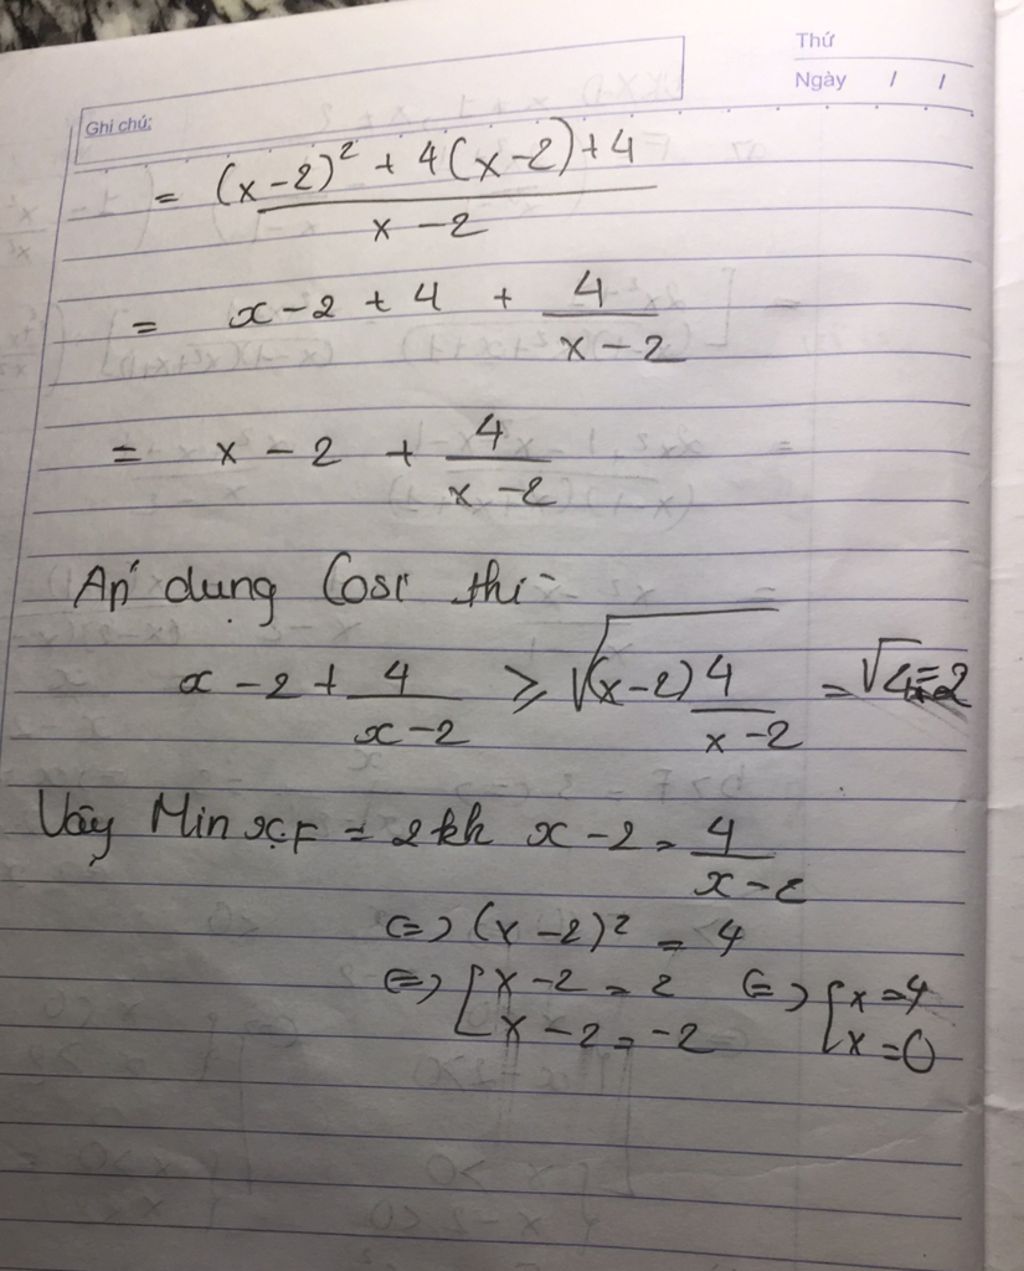 Thứ
Ngày / /
Ghi chú:
= (x-2)² + 4(x-2)+4 / x-2
= x-2 + 4 + 4 / x-2
= x - 2 + 4 / x-2
Áp dụng Cosi thì
x - 2 + 4 / x-2 ≥ √(x-2) 4 / x-2 = √4 = 2
Vậy Min x.F = 2 kh x - 2 = 4 / x-2
<=> (x-2)² = 4
<=> [ x-2 = 2 <=> [ x = 4
x - 2 = -2 x = 0